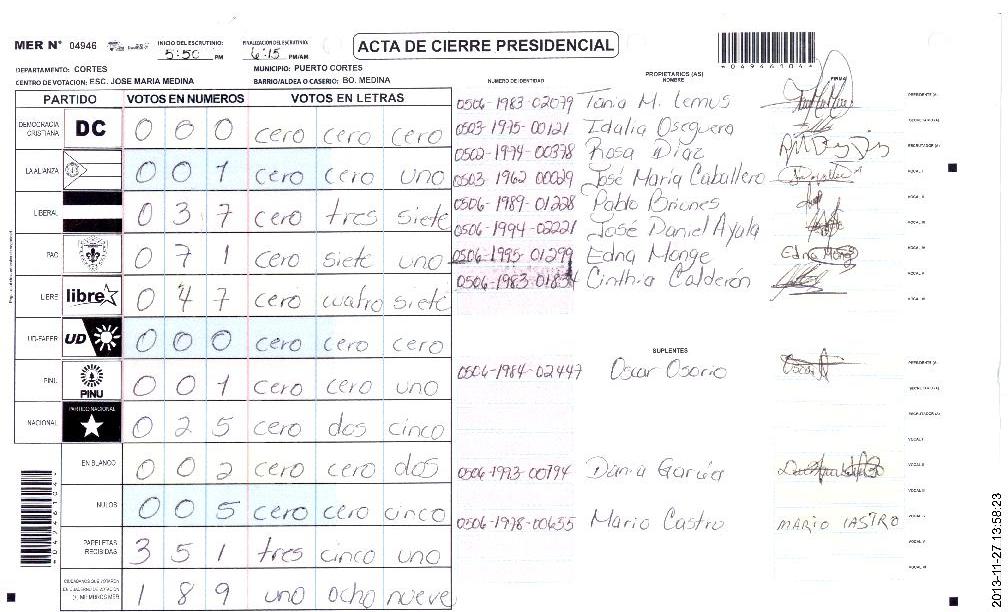 MER N° 04946
INICIO DEL ESCRUTINIO: 5:50 PM
FINALIZACION DEL ESCRUTINIO: 6:15 PM/AM
ACTA DE CIERRE PRESIDENCIAL
DEPARTAMENTO: CORTES
MUNICIPIO: PUERTO CORTES
CENTRO DE VOTACION: ESC. JOSE MARIA MEDINA
BARRIO/ALDEA O CASERIO: BO. MEDINA
PARTIDO VOTOS EN NUMEROS VOTOS EN LETRAS
DEMOCRACIA CRISTIANA DC 0 0 0 cero cero cero
LA ALIANZA 0 0 1 cero cero uno
LIBERAL 0 3 7 cero tres siete
PAC 0 7 1 cero siete uno
LIBRE libre 0 4 7 cero cuatro siete
UD-FAPER UD 0 0 0 cero cero cero
PINU PINU 0 0 1 cero cero uno
NACIONAL PARTIDO NACIONAL 0 2 5 cero dos cinco
EN BLANCO 0 0 2 cero cero dos
NULOS 0 0 5 cero cero cinco
PAPELETAS RECIBIDAS 3 5 1 tres cinco uno
CIUDADANOS QUE VOTARON 1 8 9 uno ocho nueve
NUMERO DE IDENTIDAD
PROPIETARIOS (AS)
NOMBRE
FIRMA
0506-1983-02079 Tania M. Lemus
0503-1975-00121 Idalia Oseguera
0502-1974-00378 Rosa Díaz
0503-1962 00029 José María Caballero
0506-1989-01228 Pablo Briones
0506-1994-02221 José Daniel Ayala
0506-1995-01299 Edna Monge Edna Monge
0506-1983-01834 Cinthia Calderón
SUPLENTES
0506-1984-02447 Oscar Osorio
0506-1993-00794 Dania García
0506-1978-00655 Mario Castro MARIO CASTRO
PRESIDENTE (A)
SECRETARIO (A)
ESCRUTADOR (A)
VOCAL I
VOCAL II
VOCAL III
VOCAL IV
VOCAL V
2013-11-27 13:58:23